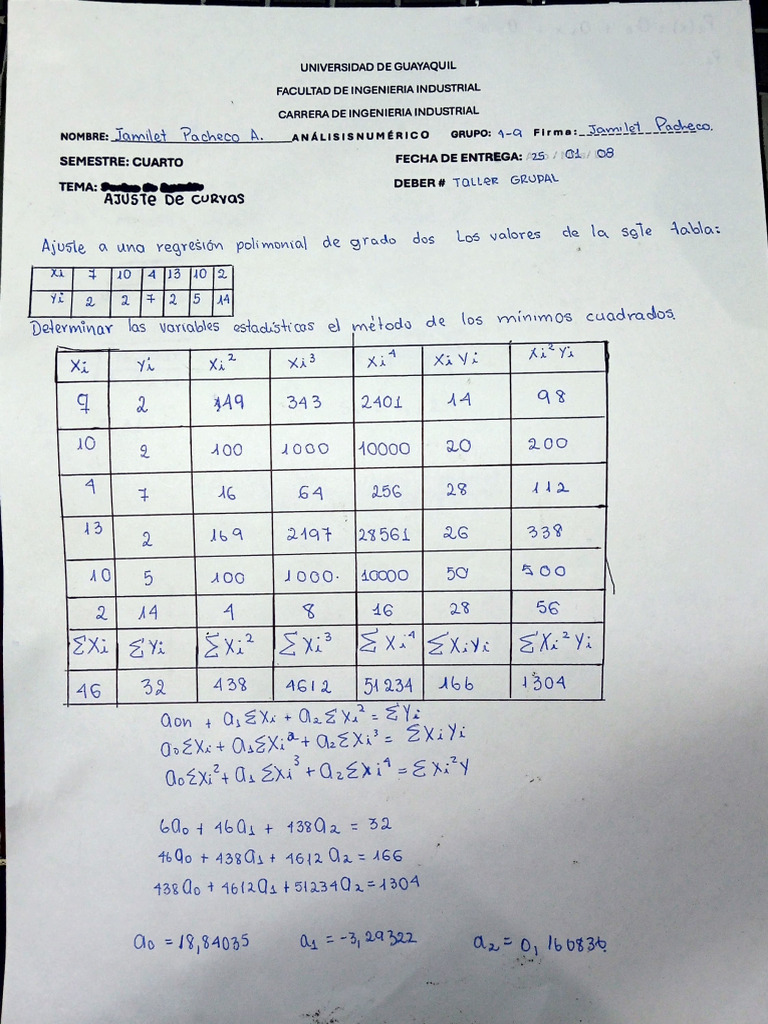 UNIVERSIDAD DE GUAYAQUIL
FACULTAD DE INGENIERIA INDUSTRIAL
CARRERA DE INGENIERIA INDUSTRIAL
NOMBRE: Jamilet Pacheco A. ANÁLISIS NUMÉRICO GRUPO: 1-9 Firma: Jamilet Pacheco.
SEMESTRE: CUARTO FECHA DE ENTREGA: 25 / 01 / 08
TEMA: AJUSTE DE CURVAS DEBER # TALLER GRUPAL
Ajuste a una regresión polimonial de grado dos Los valores de la sgte tabla:
Xi 7 10 4 13 10 2
Yi 2 2 7 2 5 14
Determinar las variables estadísticas el método de los mínimos cuadrados.
Xi Yi Xi² Xi³ Xi⁴ Xi Yi Xi² Yi
7 2 49 343 2401 14 98
10 2 100 1000 10000 20 200
4 7 16 64 256 28 112
13 2 169 2197 28561 26 338
10 5 100 1000 10000 50 500
2 14 4 8 16 28 56
ΣXi ΣYi ΣXi² ΣXi³ ΣXi⁴ ΣXiYi ΣXi²Yi
46 32 438 4612 51234 166 1304
a₀n + a₁ΣXi + a₂ΣXi² = ΣYi
a₀ΣXi + a₁ΣXi² + a₂ΣXi³ = ΣXiYi
a₀ΣXi² + a₁ΣXi³ + a₂ΣXi⁴ = ΣXi²Y
6a₀ + 46a₁ + 438a₂ = 32
46a₀ + 438a₁ + 4612a₂ = 166
438a₀ + 4612a₁ + 51234a₂ = 1304
a₀ = 18,84035 a₁ = -3,29322 a₂ = 0,160836